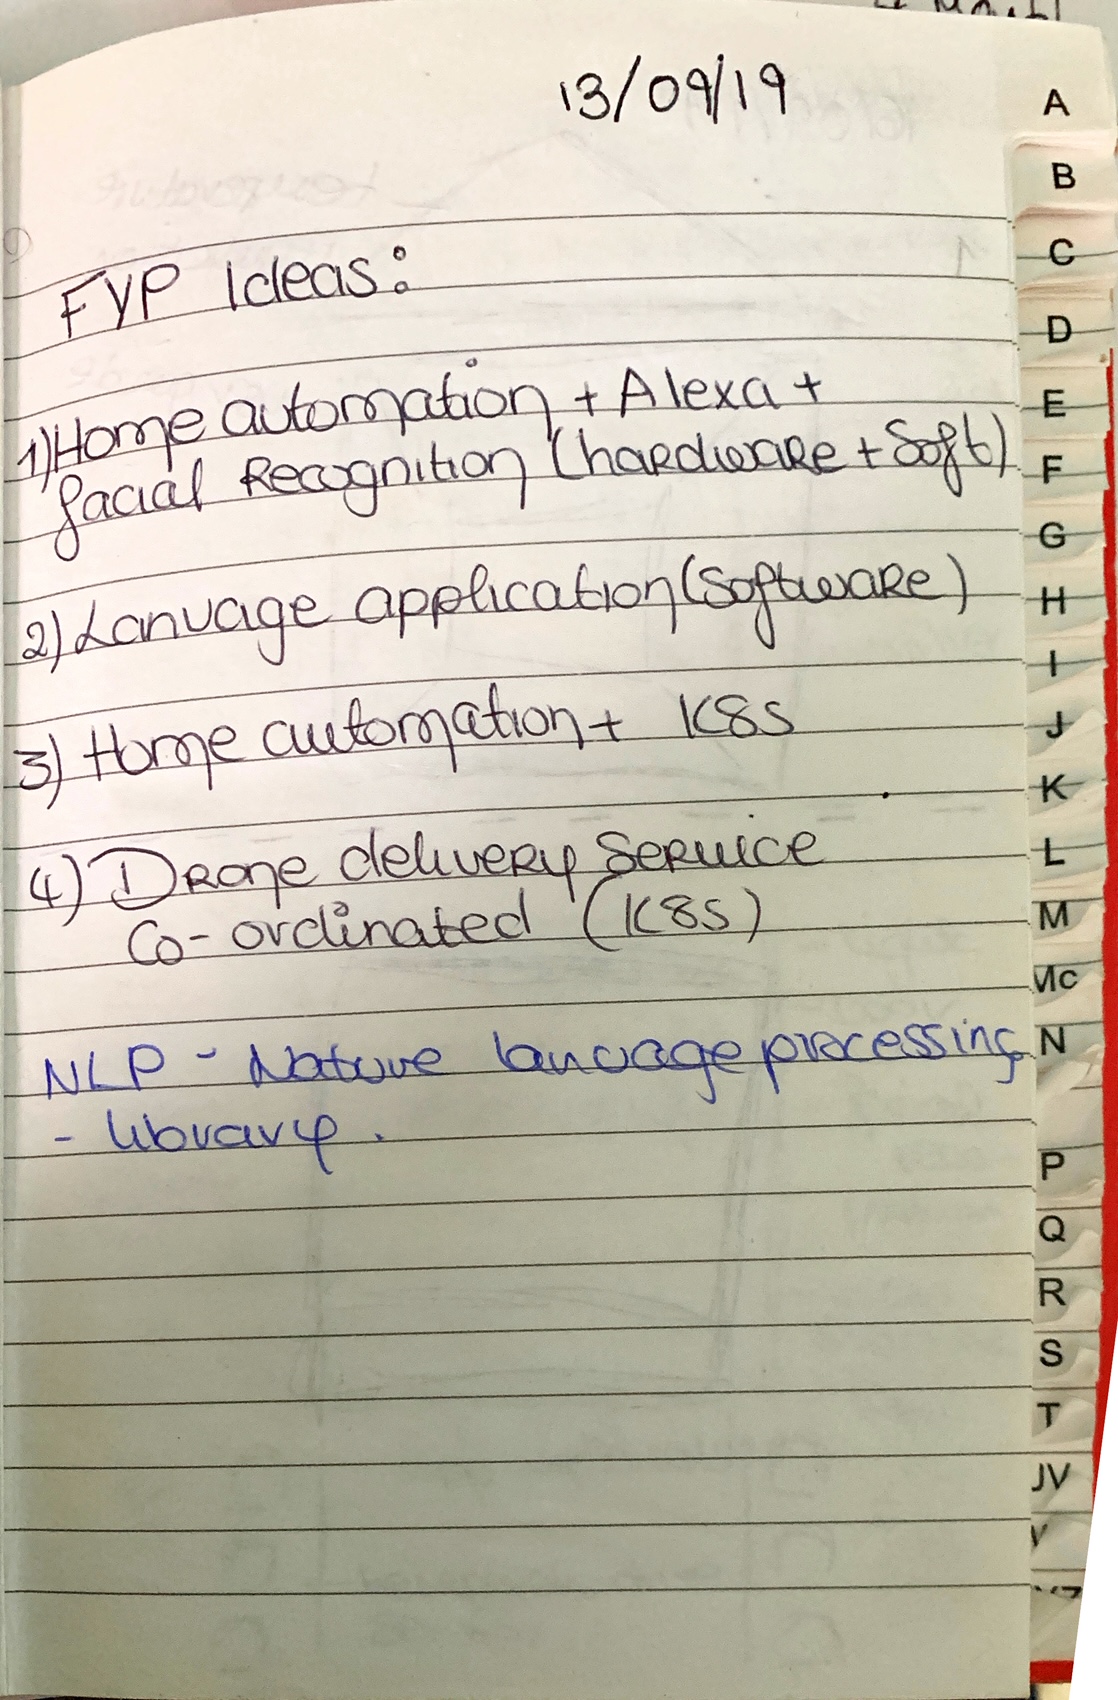 13/09/19
FYP Ideas:
1) Home automation + Alexa +
facial Recognition (hardware + Soft)
2) Lanuage application (Software)
3) Home automation + K8S
4) Drone delivery Service
Co-ordinated (K8S)
NLP - Nature lanuage processing
- library.
A
B
C
D
E
F
G
H
I
J
K
L
M
Mc
N
P
Q
R
S
T